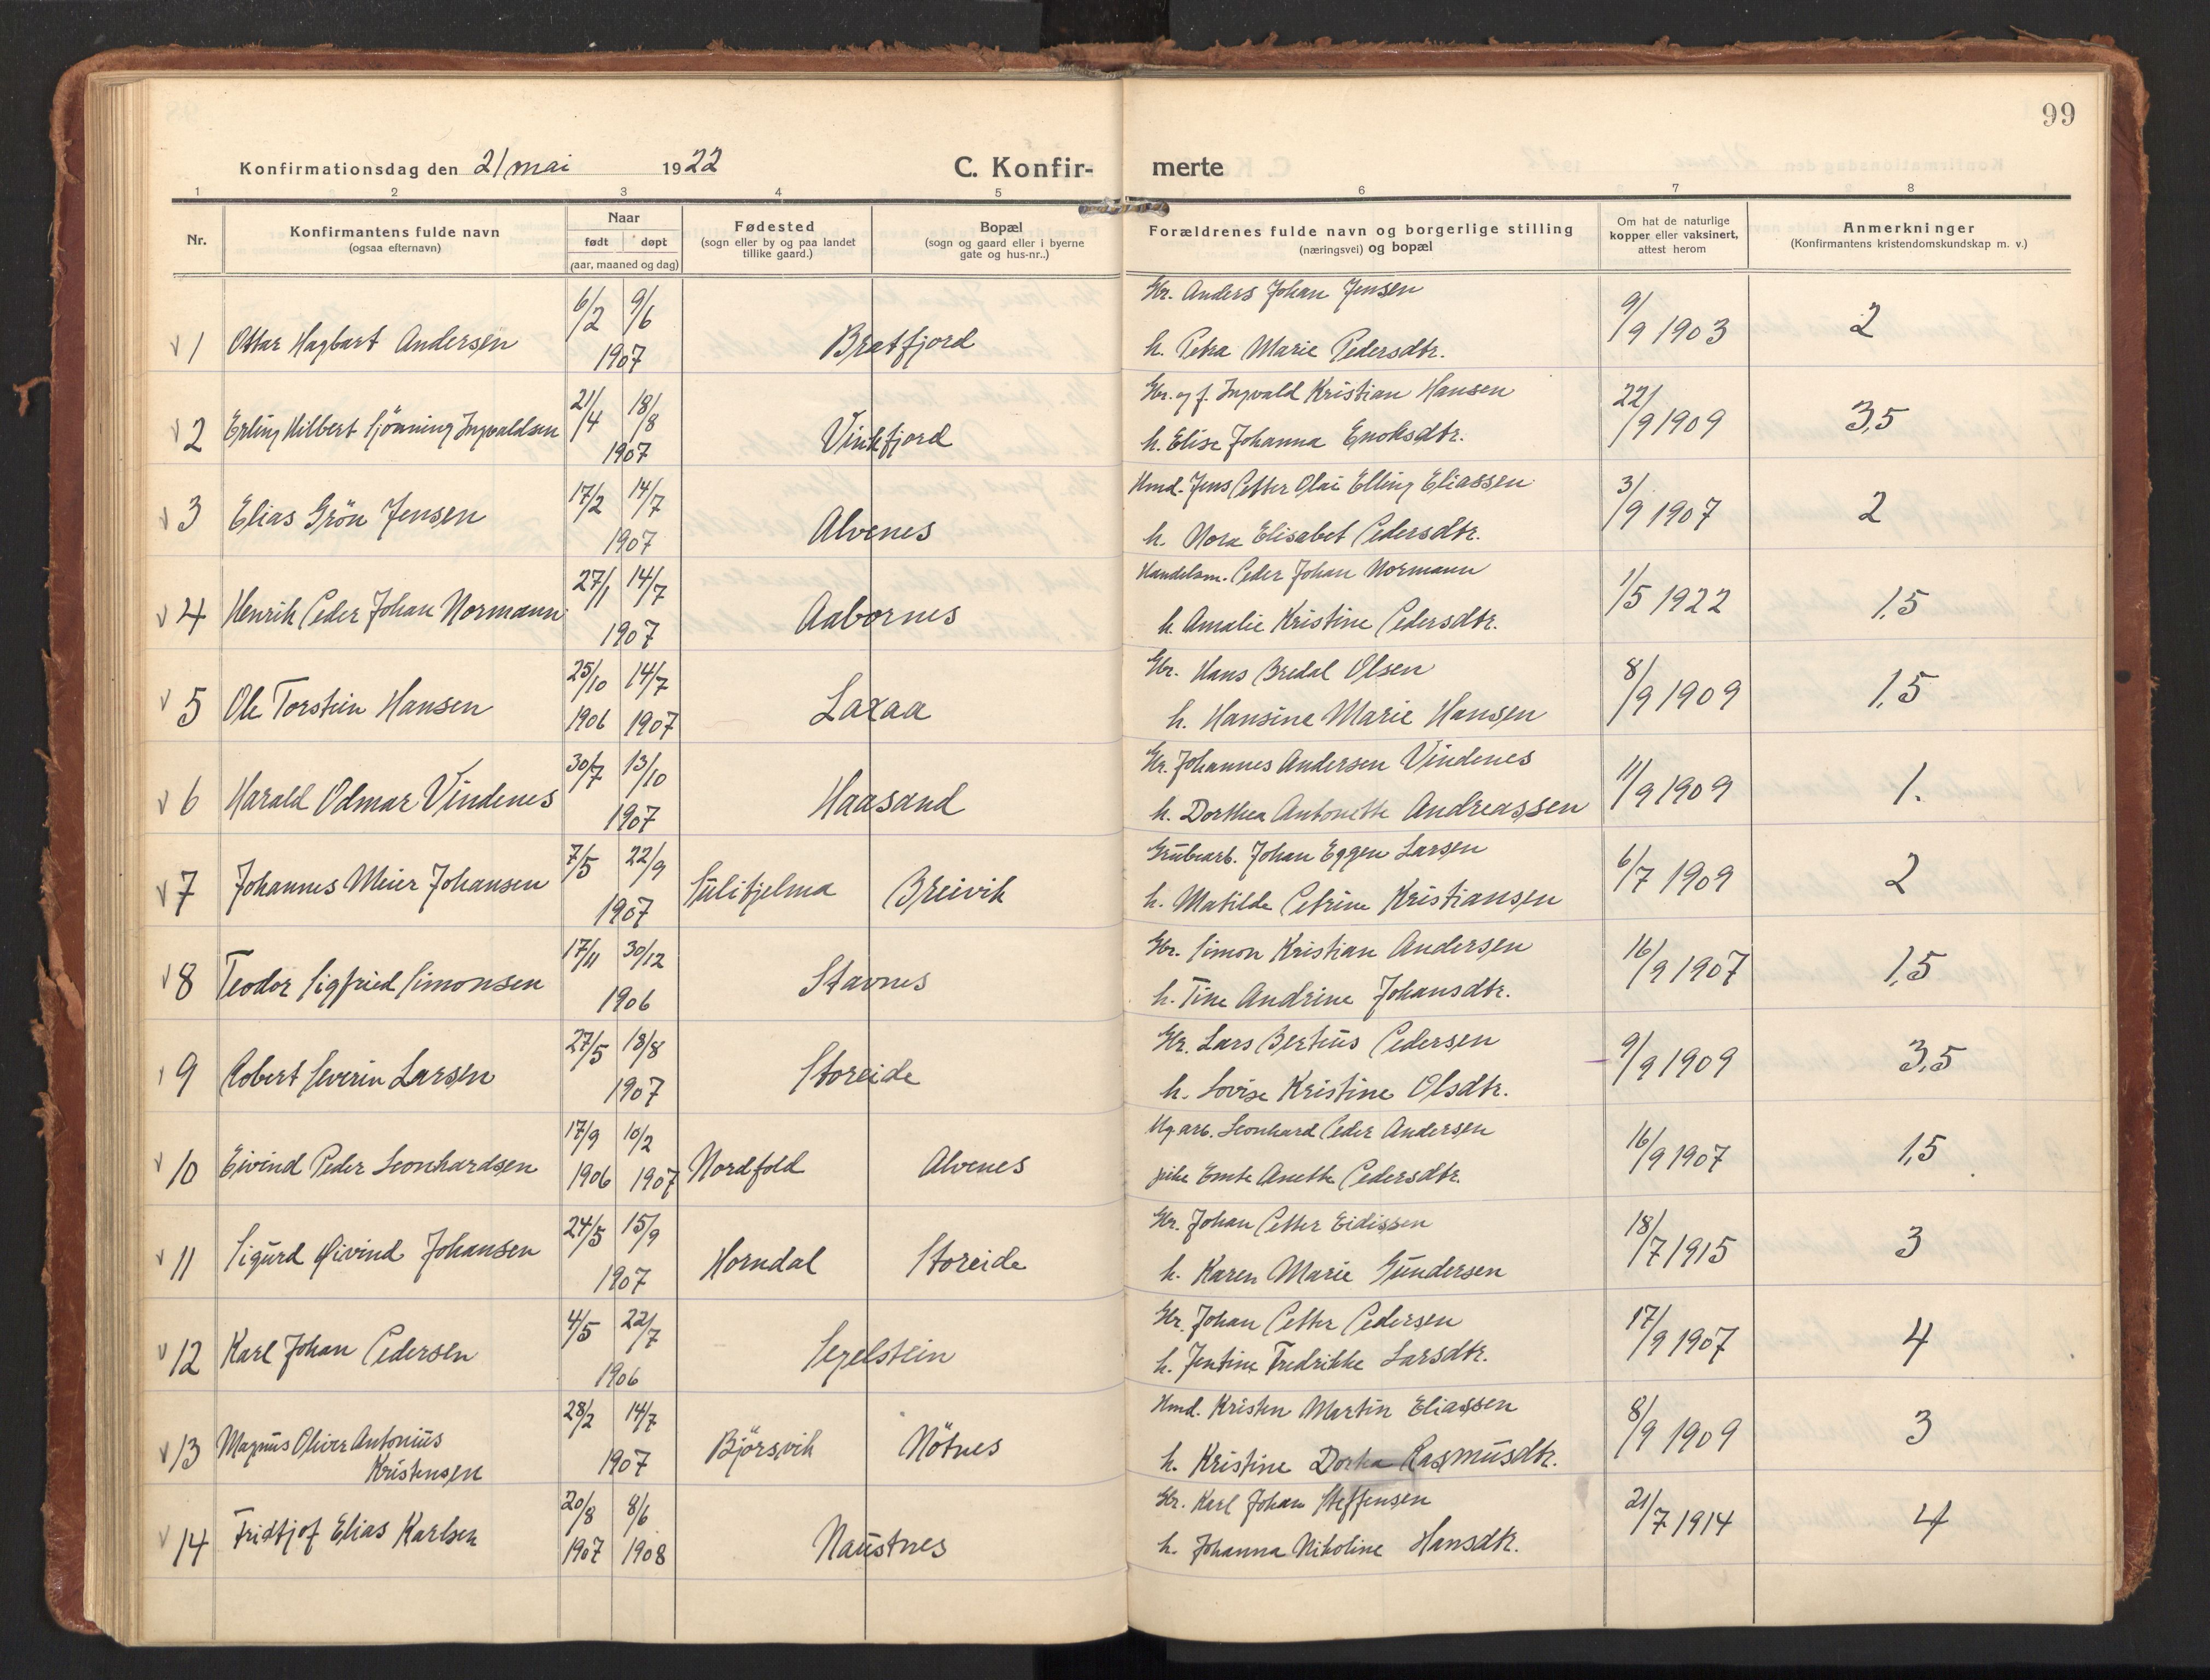 99
Konfirmationsdag den 21 mai 1922 C. Konfir- merte
1 2 3 4 5 6 7 8
Nr. Konfirmantens fulde navn (ogsaa efternavn) Naar født døpt (aar, maaned og dag) Fødested (sogn eller by og paa landet tillike gaard.) Bopæl (sogn og gaard eller i byerne gate og hus-nr..) Forældrenes fulde navn og borgerlige stilling (næringsvei) og bopæl Om hat de naturlige kopper eller vaksinert, attest herom Anmerkninger (Konfirmantens kristendomskundskap m. v.)
6/2 9/6 Gbr. Anders Johan Jensen
1 Ottar Hagbart Andersen 1907 Bratfjord h. Petra Marie Pedersdtr. 9/9 1903 2
21/4 18/8 Gbr. og f. Ingvald Kristian Hansen
2 Erling Hilbert Sjönning Ingvaldsen 1907 Vinkfjord h. Elise Johanna Enoksdtr. 22/9 1909 3,5
17/2 14/7 Hmd. Jens Petter Olai Elling Eliassen
3 Elias Grön Jensen 1907 Alvenes h. Nora Elisabet Pedersdtr. 3/9 1907 2
27/1 14/7 Handelsm. Peder Johan Normann
4 Henrik Peder Johan Normann 1907 Aabornes h. Amalie Kristine Pedersdtr. 1/5 1922 1,5
25/10 14/7 Gbr. Hans Bredal Olsen
5 Ole Torstein Hansen 1906 1907 Laxaa h. Hansine Marie Hansen 8/9 1909 1,5
30/7 13/10 Gbr. Johannes Andersen Vindenes
6 Harald Odmar Vindenes 1907 Haasand h. Dorthea Antonette Andreassen 11/9 1909 1.
7/5 22/9 Grubearb. Johan Eggen Larsen
7 Johannes Meier Johansen 1907 Sulitjelma Breivik h. Matilde Petrine Kristiansen 6/7 1909 2
17/11 30/12 Gbr. Simon Kristian Andersen
8 Teodor Sigfried Simonsen 1906 Stavnes h. Tine Andrine Johansdtr. 16/9 1907 1,5
27/5 18/8 Gbr. Lars Bertéus Pedersen
9 Robert Severin Larsen 1907 Storeide h. Lovise Kristine Olsdtr. 9/9 1909 3,5
17/9 10/2 Ug. arb. Leonhard Peder Andersen
10 Eivind Peder Leonhardsen 1906 1907 Nordfold Alvenes pike Emte Anette Pedersdtr. 16/9 1907 1,5
24/5 15/9 Gbr. Johan Petter Eidissen
11 Sigurd Øivind Johansen 1907 Horndal Storeide h. Karen Marie Gundersen 18/7 1915 3
4/5 22/7 Gbr. Johan Petter Pedersen
12 Karl Johan Pedersen 1906 Segelstein h. Jentine Fredrikke Larsdtr. 17/9 1907 4
28/2 14/7 Hmd. Kristen Martin Eliassen
13 Magnus Oliver Antonius Kristensen 1907 Björsvik Nötnes h. Kristine Dorthea Rasmusdtr. 8/9 1909 3
20/8 8/6 Gbr. Karl Johan Steffensen
14 Fridtjof Elias Karlsen 1907 1908 Naustnes h. Johanna Nikoline Hansdtr. 21/7 1914 4